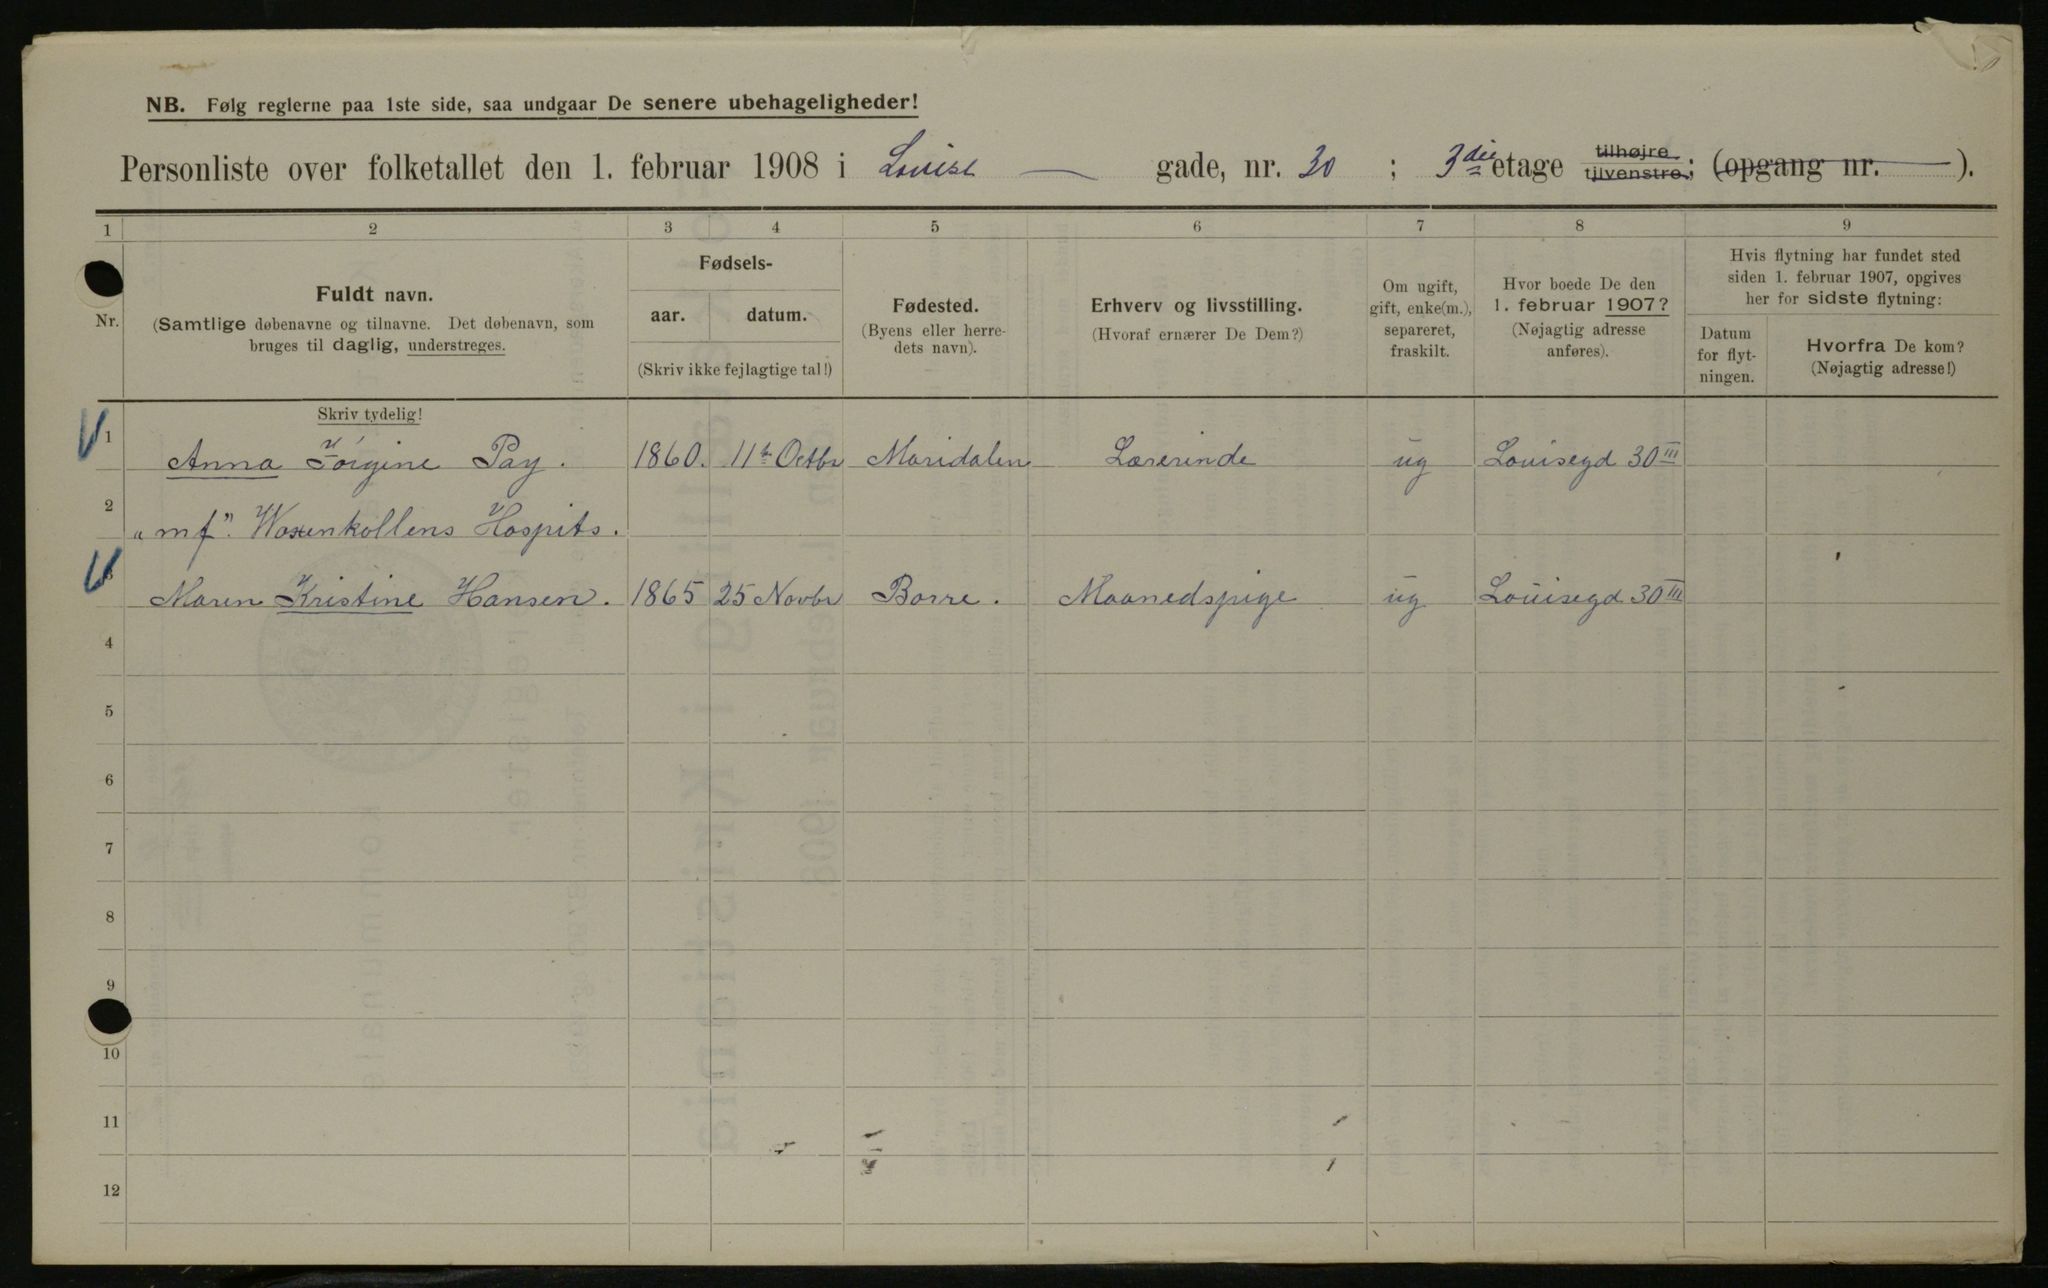 NB. Følg reglerne paa 1ste side, saa undgaar De senere ubehageligheder!
Personliste over folketallet den 1. februar 1908 i Louise — gade, nr. 30 ; 3die etage tilhøjre tilvenstre; (opgang nr. ).
1 2 3 4 5 6 7 8 9
Nr.
Fuldt navn.
(Samtlige døbenavne og tilnavne. Det døbenavn, som
bruges til daglig, understreges.
Fødsels-
aar. datum.
(Skriv ikke fejlagtige tal!)
Fødested.
(Byens eller herre-
dets navn).
Erhverv og livsstilling.
(Hvoraf ernærer De Dem?)
Om ugift,
gift, enke(m.),
separeret,
fraskilt.
Hvor boede De den
1. februar 1907?
(Nøjagtig adresse
anføres).
Hvis flytning har fundet sted
siden 1. februar 1907, opgives
her for sidste flytning:
Datum
for flyt-
ningen.
Hvorfra De kom?
(Nøjagtig adresse!)
Skriv tydelig!
1 Anna Jörgine Pay. 1860. 11te Octbr Maridalen Lærerinde ug Louisegd 30III
2 "mf". Woxenkollens Hospits.
3 Maren Kristine Hansen. 1865 25 Novbr Borre. Maanedspige ug Louisegd 30III
4
5
6
7
8
9
10
11
12